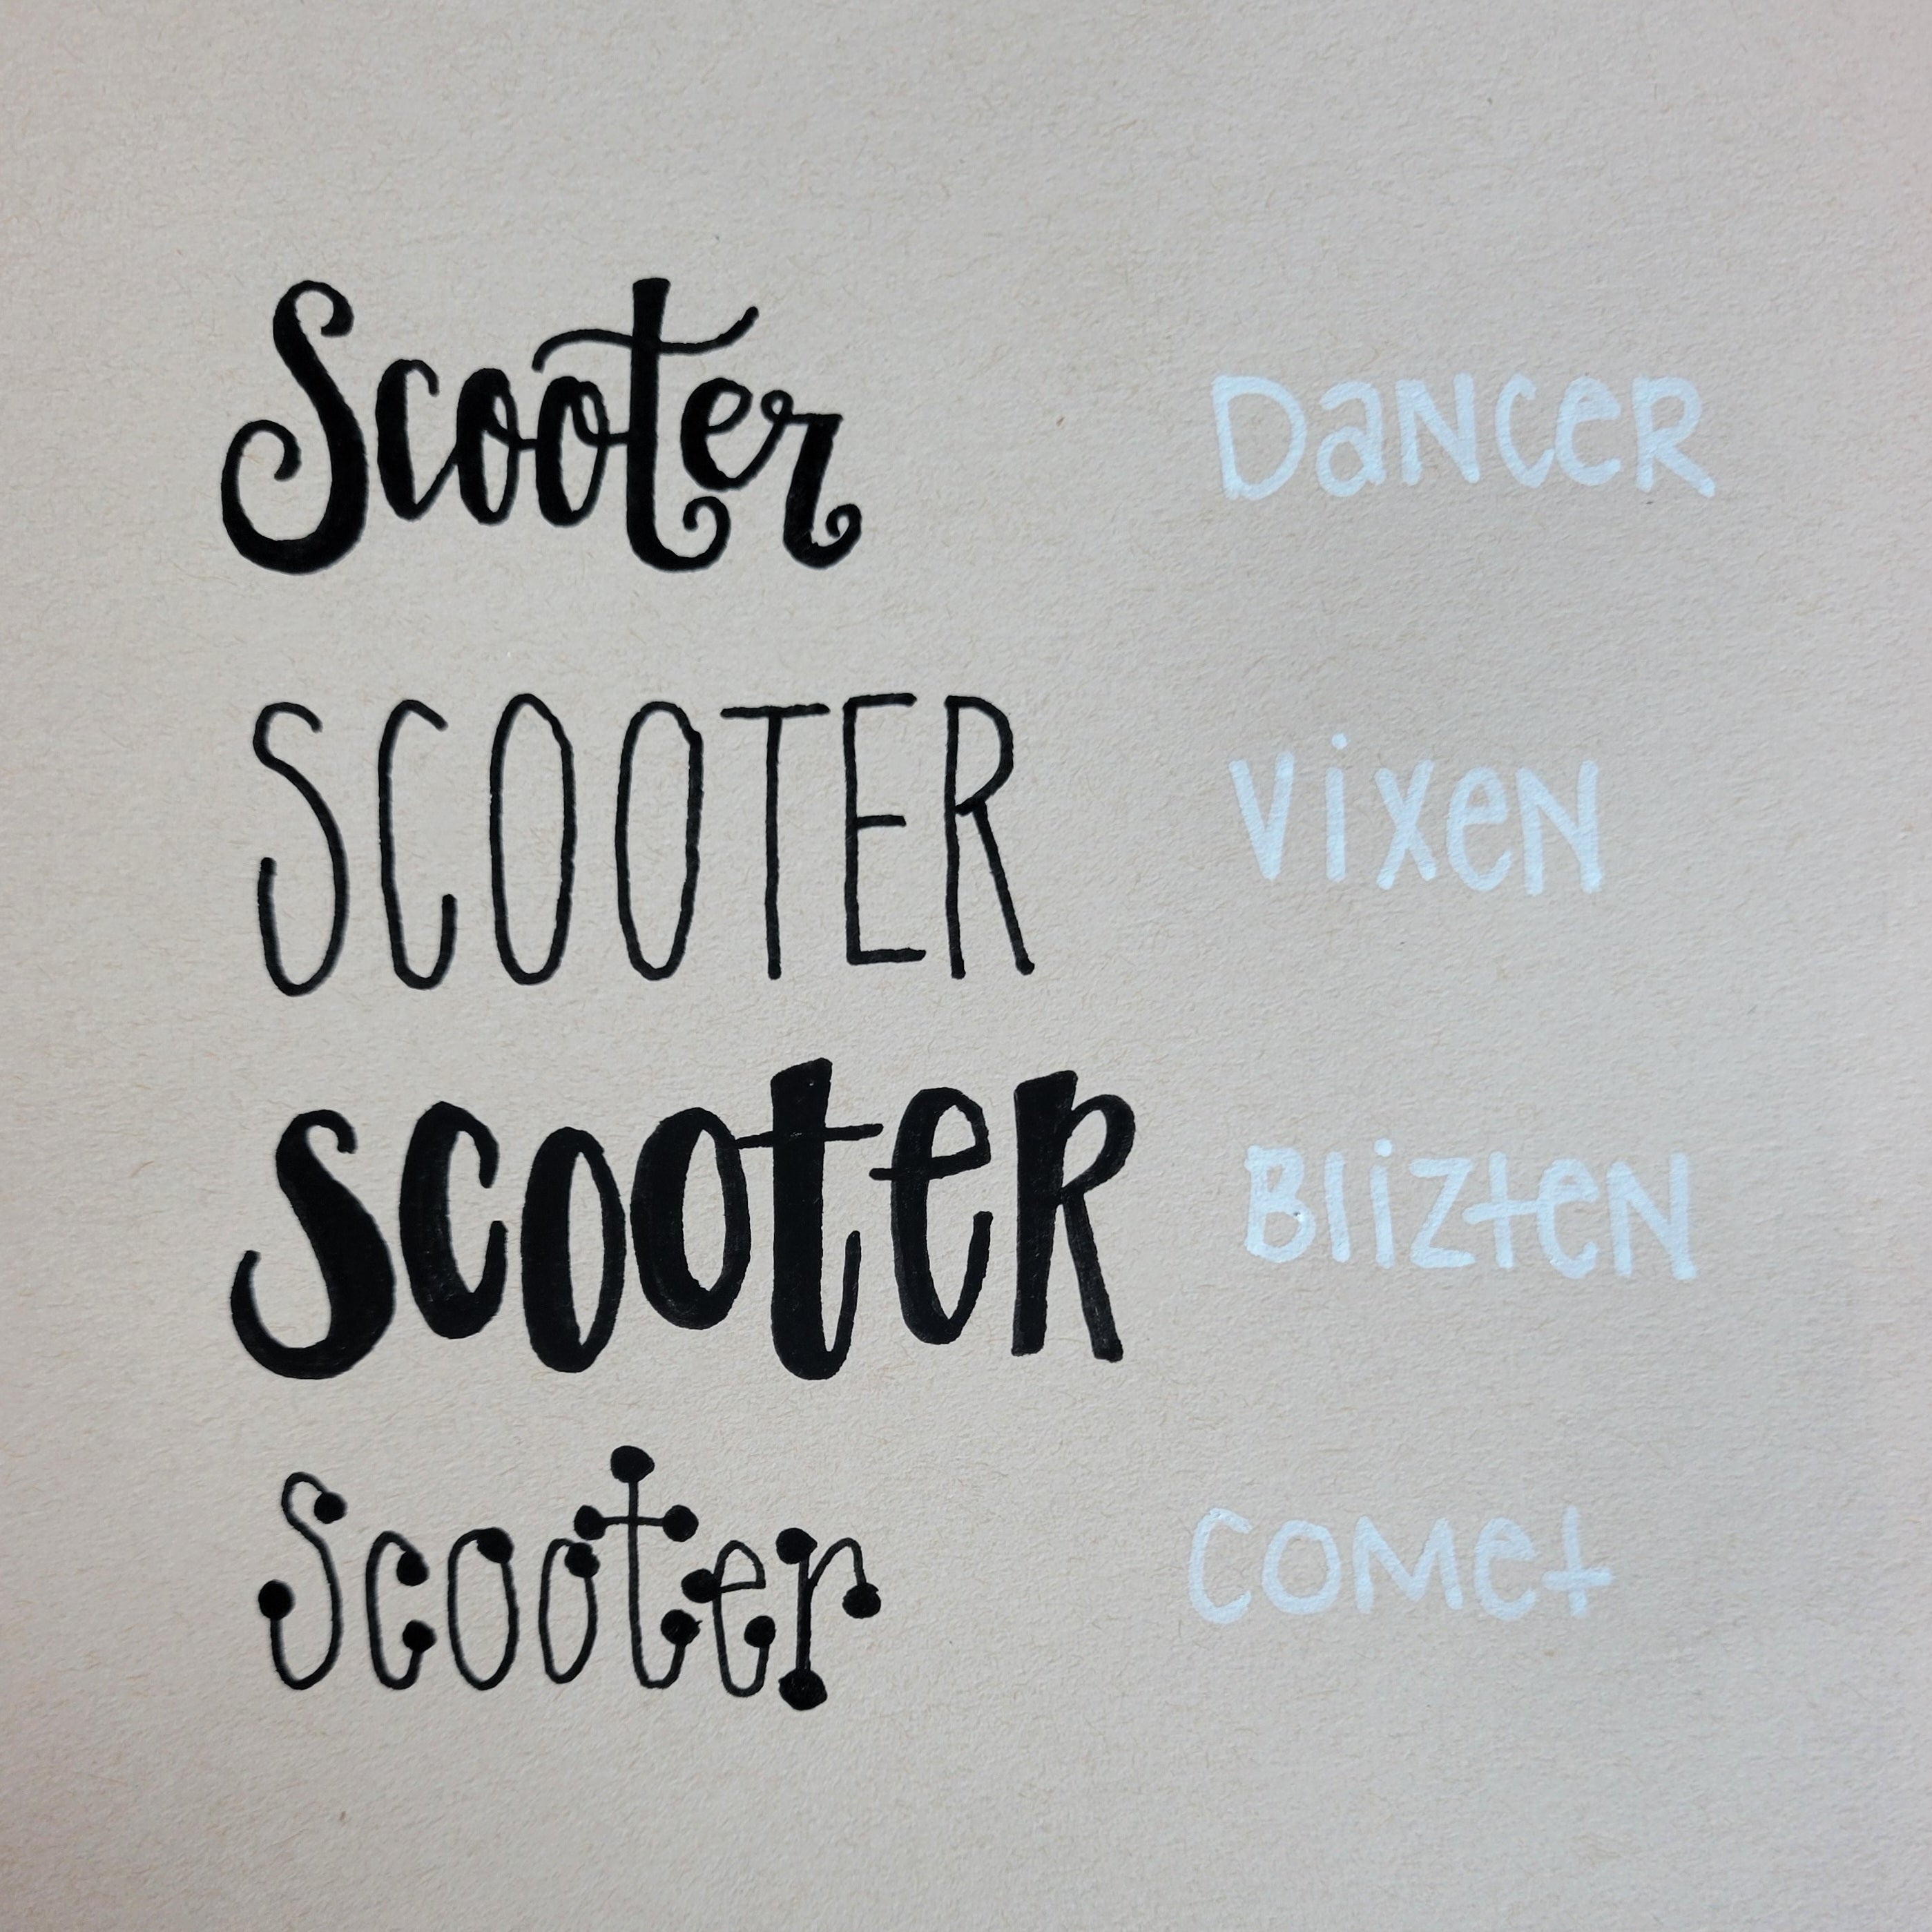 Scooter DaNceR
SCOOTER vixeN
scooteR BlizteN
Scooter coMet